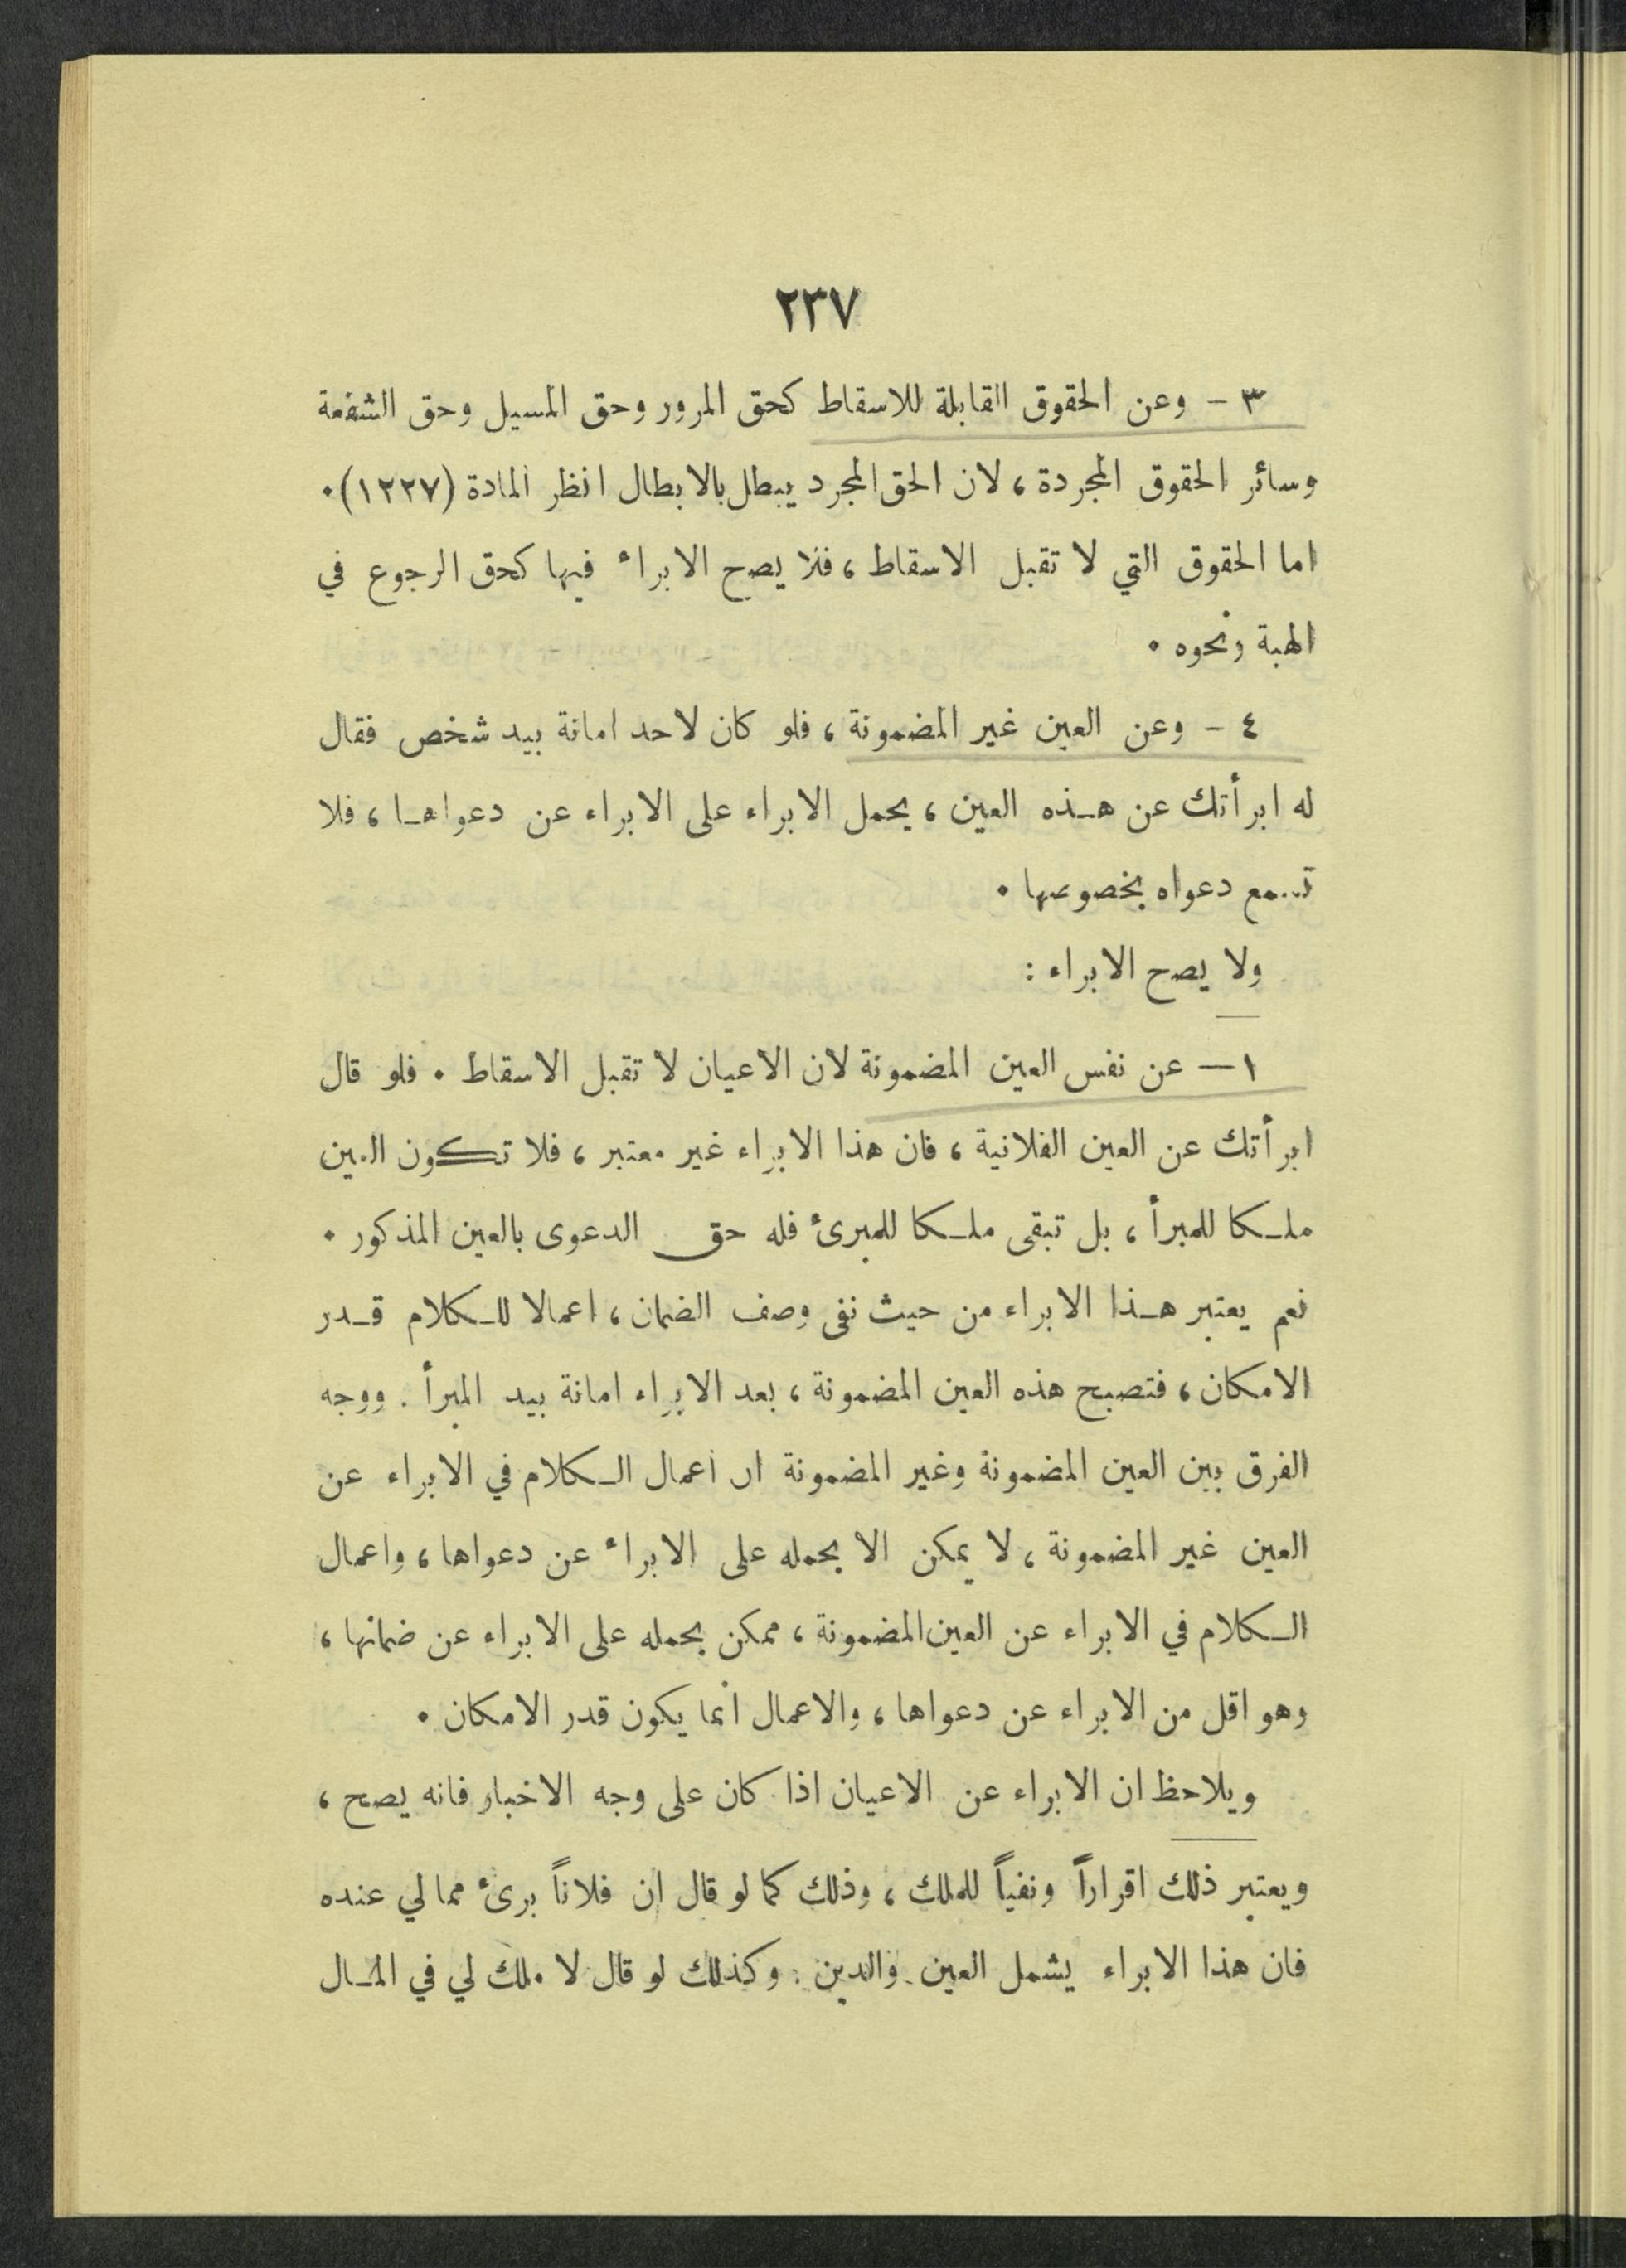 ٢٣٧
٣ - وعن الحقوق القابلة للاسقاط كحق المرور وحق المسيل وحق الشفعة
وسائر الحقوق المجردة ، لان الحق المجرد يبطل بالابطال انظر المادة (١٢٢٧) .
اما الحقوق التي لا تقبل الاسقاط ، فلا يصح الابراء فيها كحق الرجوع في
الهبة ونحوه .
٤ - وعن العين غير المضمونة ، فلو كان لاحد امانة بيد شخص فقال
له ابرأتك عن هـذه العين ، يحمل الابراء على الابراء عن دعواهـا ، فلا
تسمع دعواه بخصوصها .
ولا يصح الابراء :
١ — عن نفس العين المضمونة لان الاعيان لا تقبل الاسقاط . فلو قال
ابرأتك عن العين الفلانية ، فان هذا الابراء غير معتبر ، فلا تكون العين
ملـكا للمبرأ ، بل تبقى ملـكا للمبرئ فله حق الدعوى بالعين المذكور .
نعم يعتبر هـذا الابراء من حيث نفى وصف الضمان ، اعمالا للـكلام قـدر
الامكان ، فتصبح هذه العين المضمونة ، بعد الابراء امانة بيد المبرأ . ووجه
الفرق بين العين المضمونة وغير المضمونة ان اعمال الـكلام في الابراء عن
العين غير المضمونة ، لا يمكن الا بحمله على الابراء عن دعواها ، واعمال
الـكلام في الابراء عن العين المضمونة ، ممكن بحمله على الابراء عن ضمانها ،
وهو اقل من الابراء عن دعواها ، والاعمال انما يكون قدر الامكان .
ويلاحظ ان الابراء عن الاعيان اذا كان على وجه الاخبار فانه يصح ،
ويعتبر ذلك اقراراً ونفياً للملك ، وذلك كما لو قال ان فلاناً برئ مما لي عنده
فان هذا الابراء يشمل العين والدين . وكذلك لو قال لا ملك لي في المـال